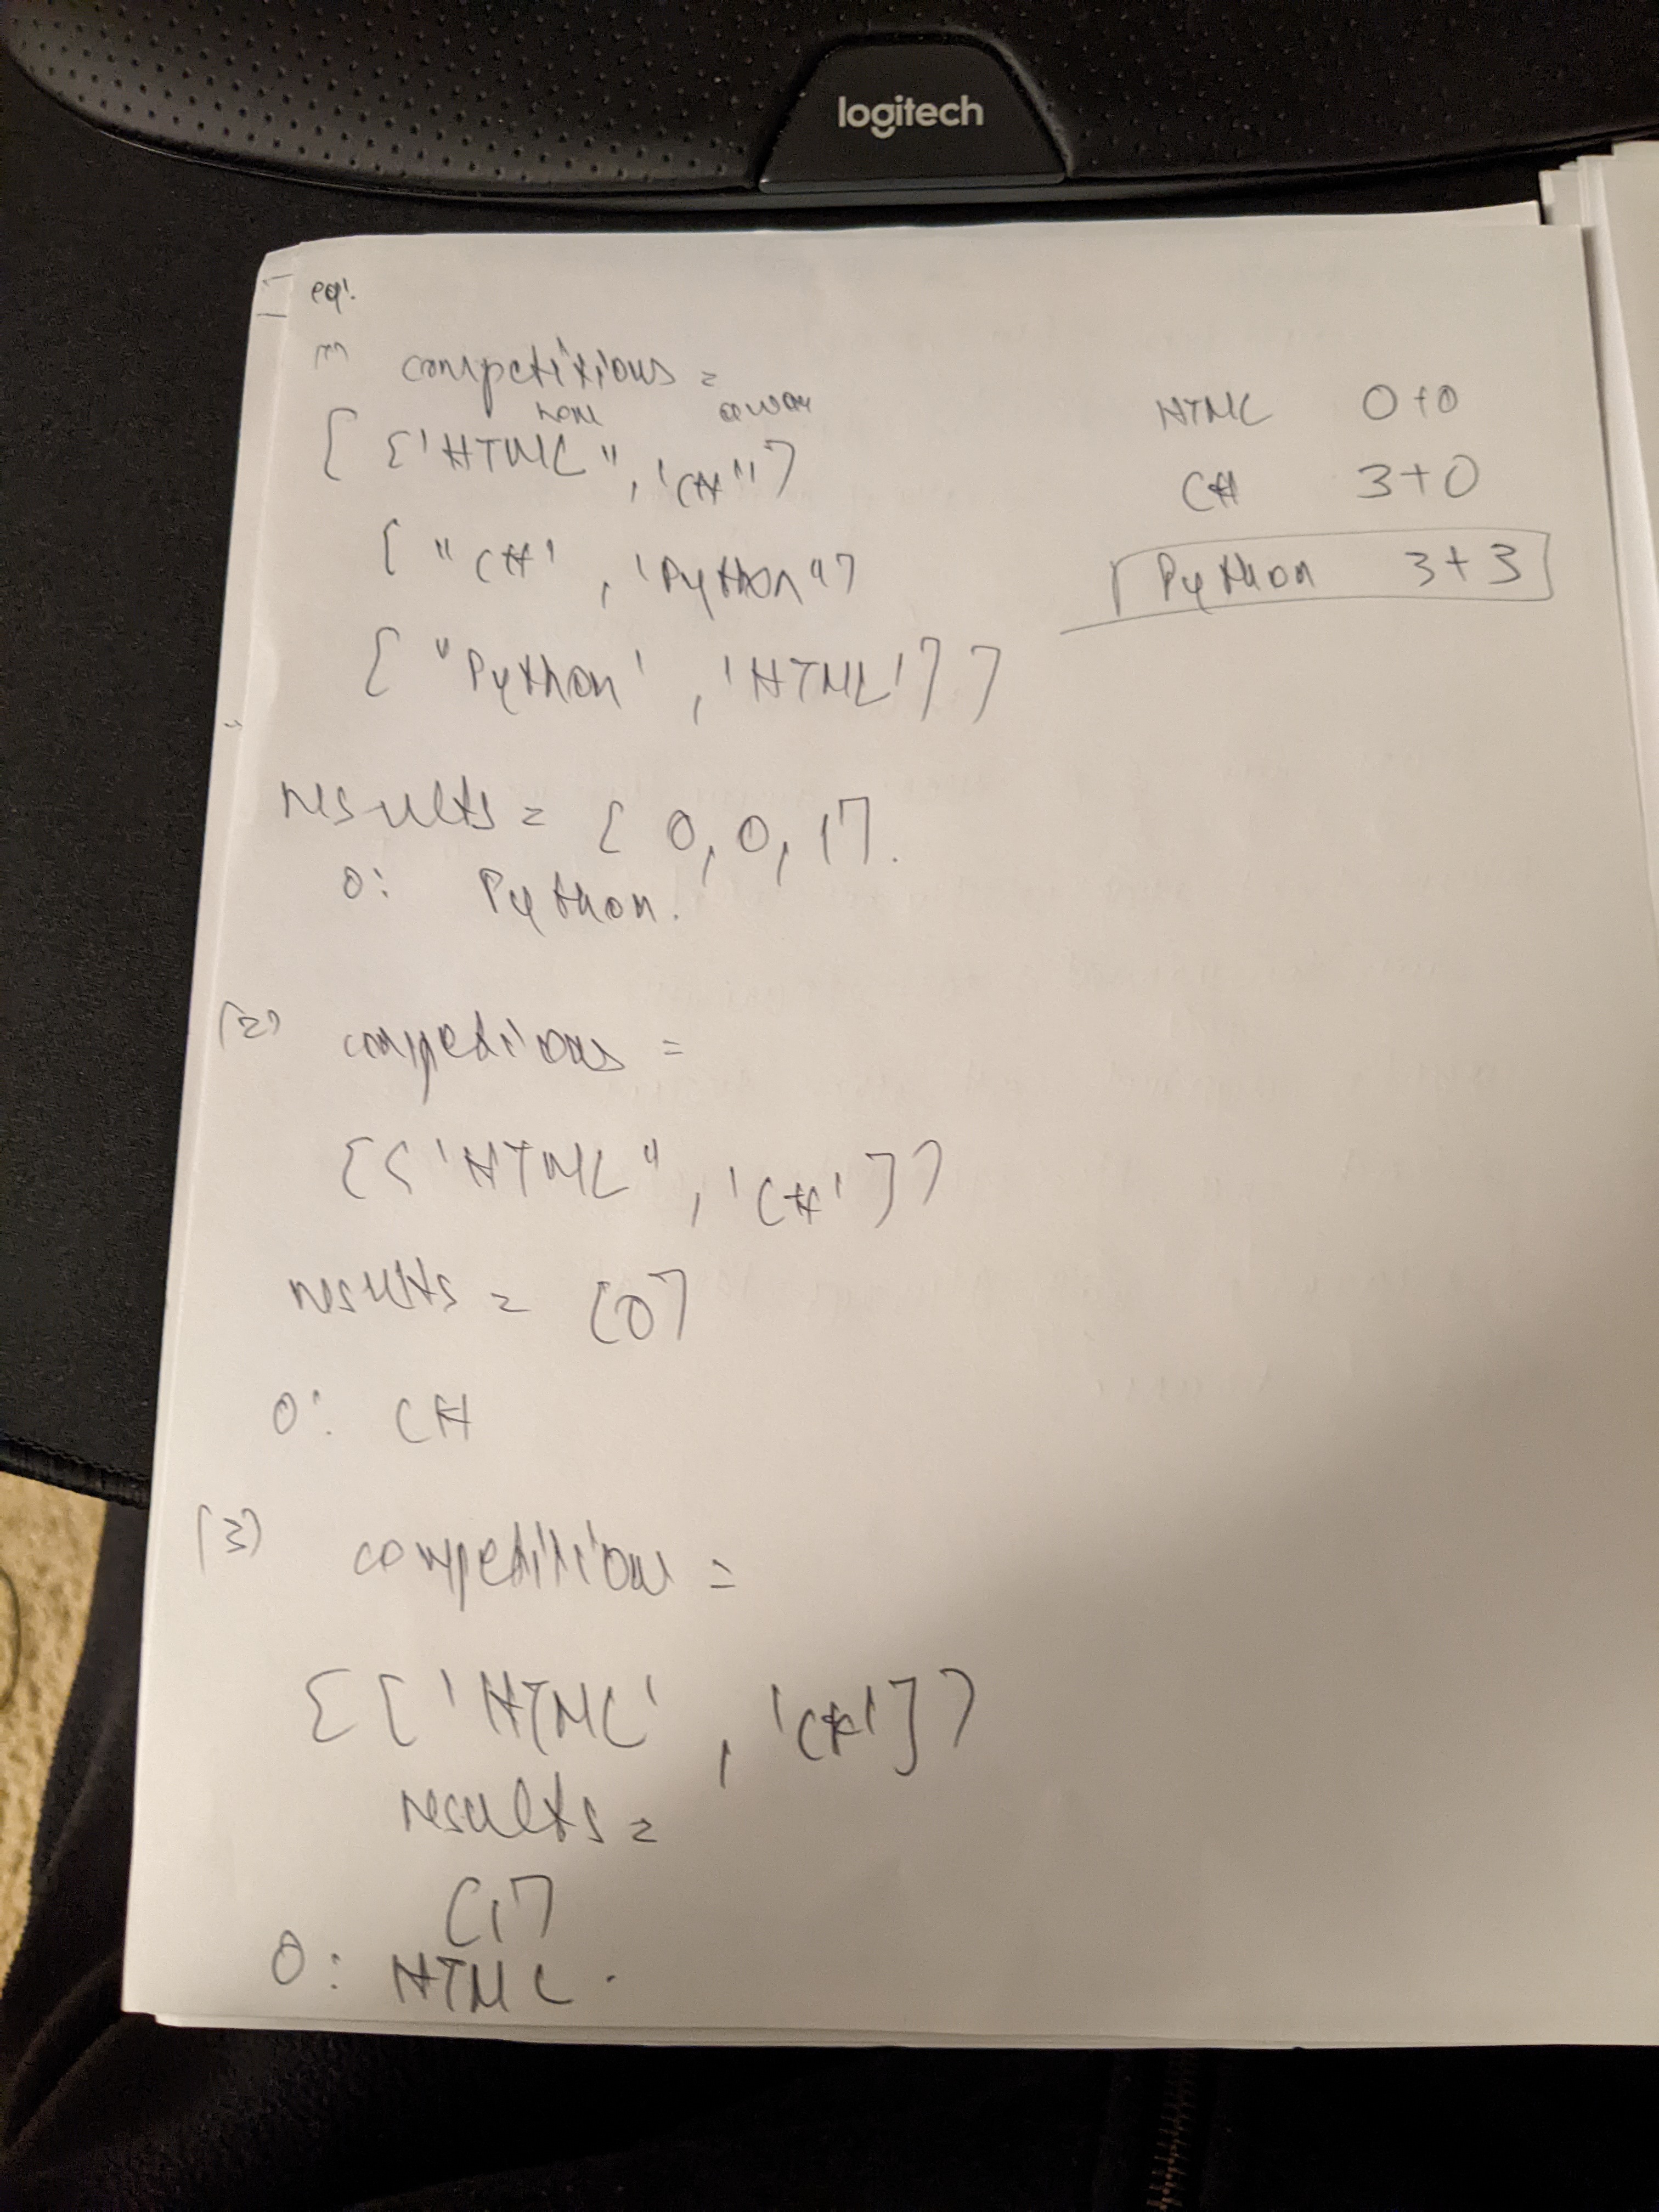 logitech
eg:
(1) competitions =
home away
[ ['HTML", 'C#"]
["C#', 'Python"]
["Python', 'HTML']]
HTML 0+0
C# 3+0
Python 3+3
results = [0,0,1].
O: Python.
(2) competitions =
[['HTML", 'C#']]
results = [0]
O: C#
(3) competitions =
[['HTML', 'C#']]
results =
[1]
O: HTML.